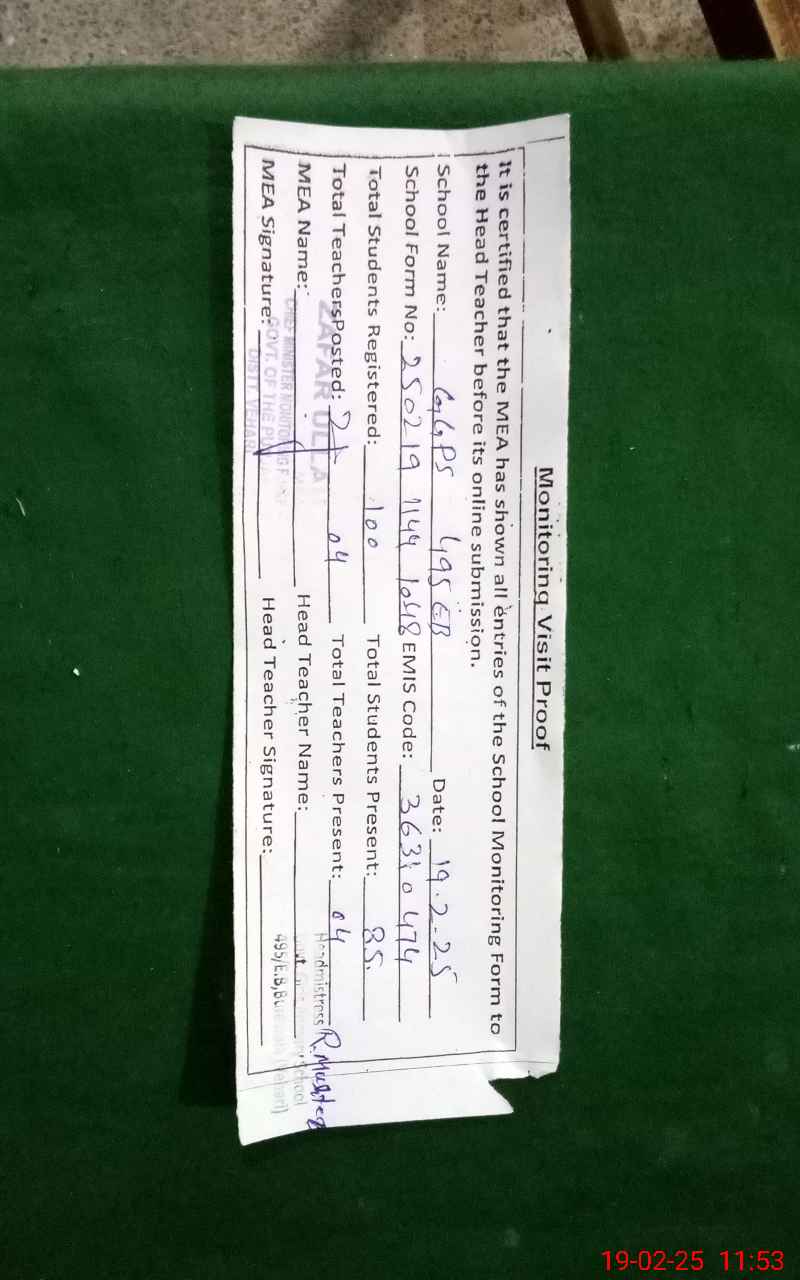 Monitoring Visit Proof
It is certified that the MEA has shown all entries of the School Monitoring Form to
the Head Teacher before its online submission.
School Name: GGPS 495 EB Date: 19.2-25
School Form No: 250219 1144 1048 EMIS Code: 36310474
Total Students Registered: 100 Total Students Present: 85.
Total TeachersPosted: 04 Total Teachers Present: 04
MEA Name: Head Teacher Name:
MEA Signature: Head Teacher Signature:
ZAFAR ULLA
CHIEF MINISTER MONITORING F
GOVT. OF THE PU
DISTT VEHAR
Headmistress
School
495/E.B,Bu
19-02-25 11:53